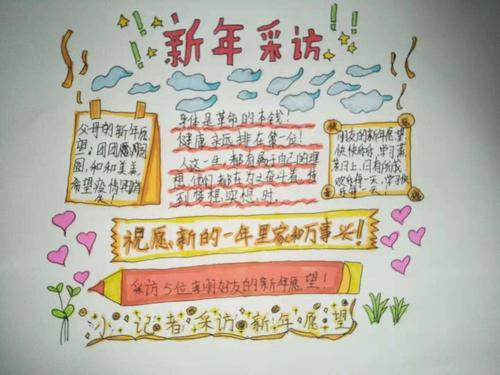 新年采访
父母的新年愿
望：团团圆圆
圆，和和美美，
希望疫情
身体是革命的本钱！
健康永远排在第一位！
人这一年都有属于自己的理
想，他们都在为之奋斗着，等
到梦想实现时。
朋友的新年愿望
快快乐乐，学习蒸
蒸日上，日有所成，
每一天，学习
祝愿：新的一年里家和万事兴！
采访5位亲朋好友的新年愿望！
小记者采访新年愿望